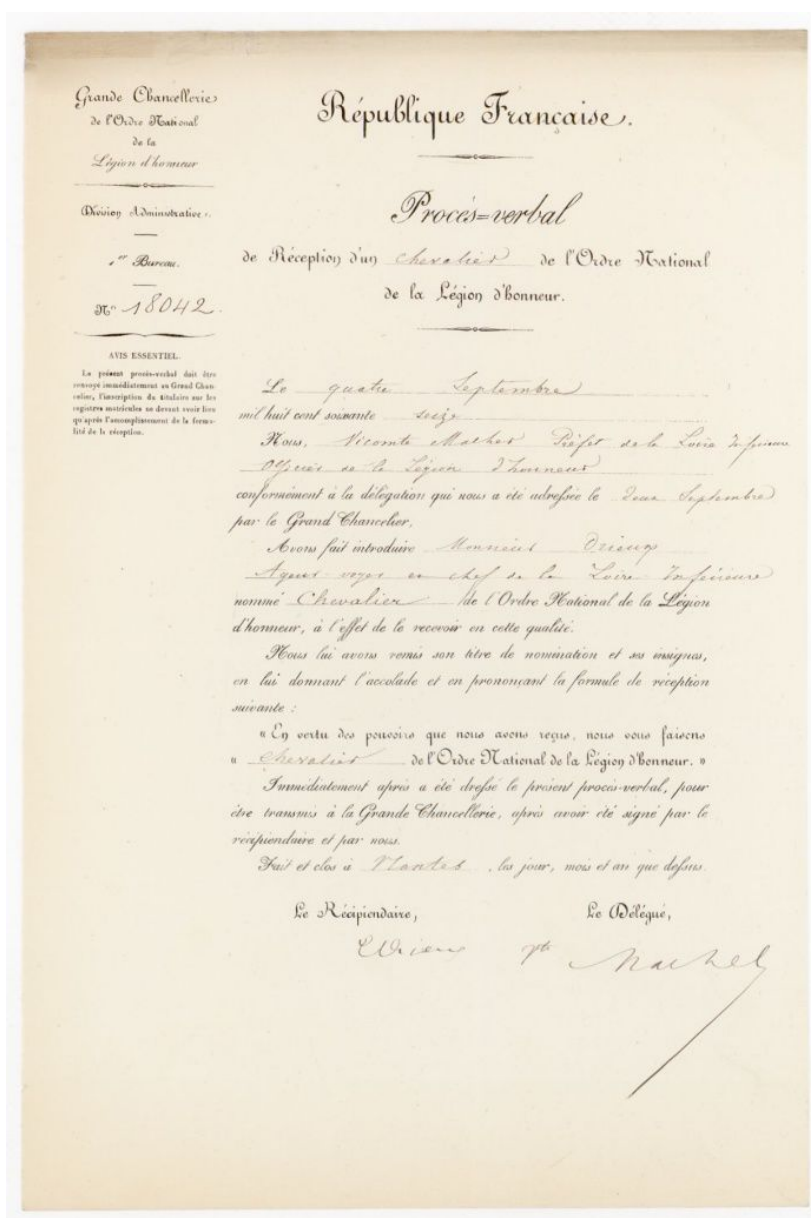 Grande Chancellerie
de l'Ordre National
de la
Légion d'honneur
Division Administrative.
1er Bureau.
N° 18042.
AVIS ESSENTIEL.
Le présent procès-verbal doit être
renvoyé immédiatement au Grand Chan-
celier, l'inscription du titulaire sur les
registres matricules ne devant avoir lieu
qu'après l'accomplissement de la forma-
lité de la réception.
République Française.
Procès=verbal
de Réception d'un chevalier de l'Ordre National
de la Légion d'honneur.
Le quatre Septembre
mil huit cent soixante seize
Nous, Vicomte Malher Préfet de la Loire Inférieure
Officier de la Légion d'honneur
conformément à la délégation qui nous a été adressée le deux Septembre
par le Grand Chancelier,
Avons fait introduire Monsieur Drieux
Agent-voyer en chef de la Loire Inférieure
nommé Chevalier de l'Ordre National de la Légion
d'honneur, à l'effet de le recevoir en cette qualité.
Nous lui avons remis son titre de nomination et ses insignes,
en lui donnant l'accolade et en prononçant la formule de réception
suivante :
« En vertu des pouvoirs que nous avons reçus, nous vous faisons
« chevalier de l'Ordre National de la Légion d'honneur. »
Immédiatement après a été dressé le présent procès-verbal, pour
être transmis à la Grande Chancellerie, après avoir été signé par le
récipiendaire et par nous.
Fait et clos à Nantes, les jour, mois et an que dessus.
Le Récipiendaire,
Le Délégué,
EDrieux
Vte Malher